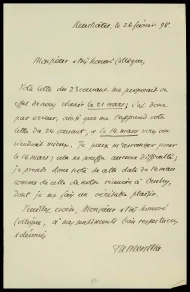 Neuchâtel, le 26 février 98
Monsieur et très honoré Collègue,
Votre lettre du 23 courant me proposait en
effet de nous réunir le 21 mars; c'est donc
par erreur, ainsi que me l'apprend votre
lettre du 24 courant, le 14 mars vous con-
viendrait mieux. Je peux m'arranger pour
le 14 mars; cela ne souffre aucune difficulté;
je prends donc note de cette date du 14 mars
comme de celle de notre réunion à
dont je me fais un véritable plaisir.
Veuillez croire, Monsieur et très honoré
Collègue, à mes sentiments bien respectueux
et dévoués